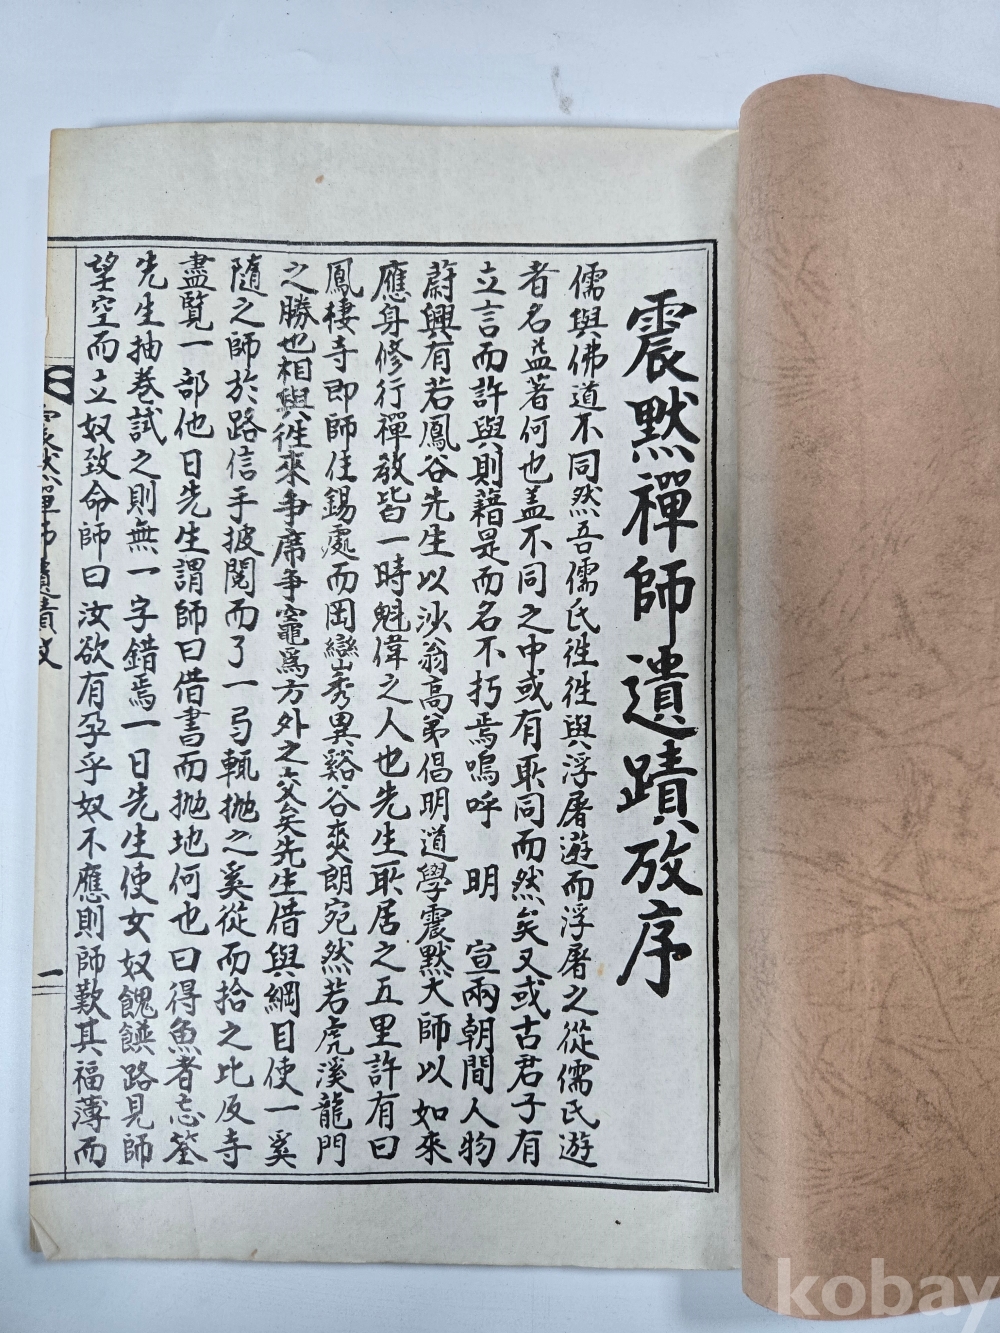 震默禪師遺蹟攷序
儒與佛道不同然吾儒氏徃徃與浮屠遊而浮屠之從儒氏遊
者名益著何也盖不同之中或有所同而然矣又或古君子有
立言而許與則藉是而名不朽焉嗚呼　明　宣兩朝間人物
蔚興有若鳳谷先生以沙翁高弟倡明道學震默大師以如來
應身修行禪教皆一時魁偉之人也先生所居之五里許有曰
鳳棲寺即師住錫處而岡巒秀異谿谷爽朗宛然若虎溪龍門
之勝也相與徃來爭席爭竈爲方外之交矣先生借與綱目使一奚
隨之師於路信手披閱而了一弓輒抛之奚從而拾之比反寺
盡覽一部他日先生謂師曰借書而抛地何也曰得魚者忘筌
先生抽卷試之則無一字錯焉一日先生使女奴餽饌路見師
望空而立奴致命師曰汝欲有孕乎奴不應則師歎其福薄而
震默禪師遺蹟攷
一
kobay